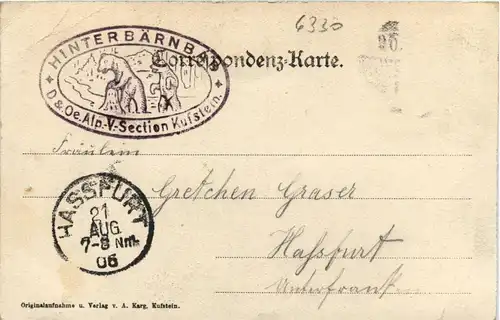 6330
HINTERBÄRNBAD
D & Oe. Alp.-V.-Section Kufstein.
Correspondenz-Karte.
Fräulein
Gretchen Graser
Hassfurt
Unterfranken
HASSFURT
21
AUG.
7-8 Nm.
06
Originalaufnahme u. Verlag v. A. Karg, Kufstein.